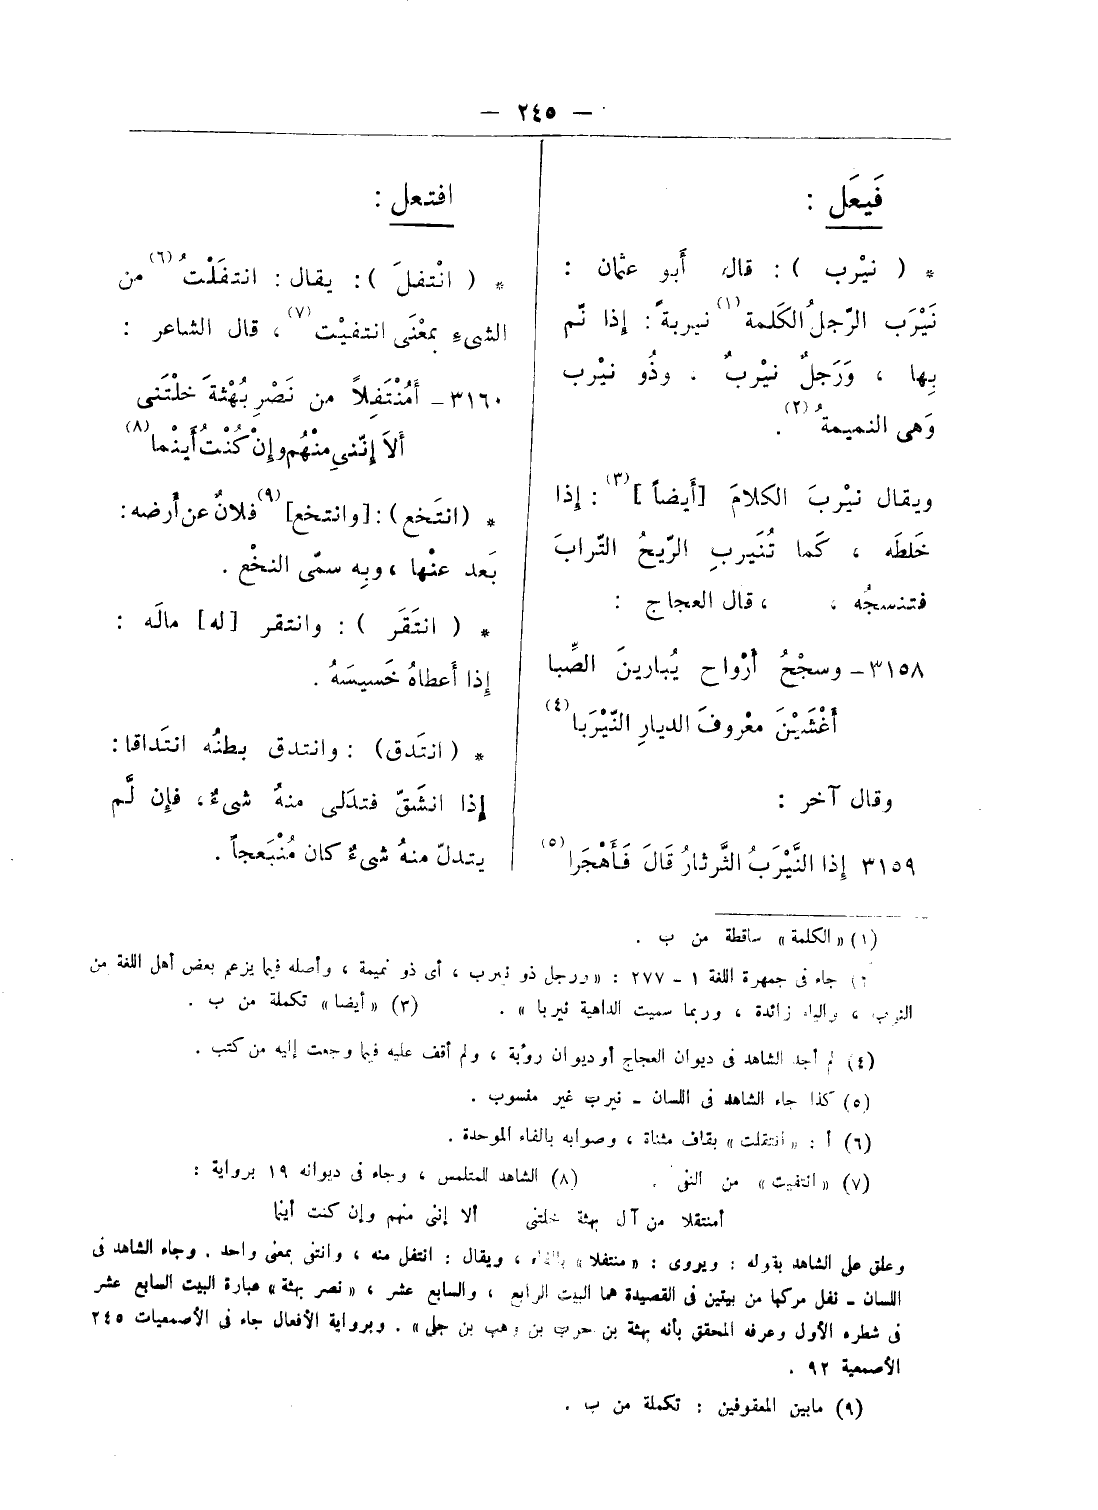 — ٢٤٥ —
فَيعَل :
* ( نيْرب ) : قال أَبو عثمان :
نَيْرَب الرّجلُ الكَلمة(١) نيربةً : إذا نّم
بِها ، وَرَجلٌ نيْربٌ . وذُو نيْرب
وَهى النميمةُ(٢) .
ويقال نيْربَ الكلامَ [أَيضاً](٣) : إذا
خَلطَه ، كَما تُنَيربِ الرّيحُ التّرابَ
فتنسجُه ، ، قال العجاج :
٣١٥٨ـ وسجْحُ أرْواح يُبارينَ الصِّبا
أَغْشَيْنَ معْروفَ الديارِ النّيْرَبا(٤)
وقال آخر :
٣١٥٩ إذا النَّيْرَبُ الثَّرثارُ قَالَ فَأَهْجَرا(٥)
افتعل :
* ( انْتفلَ ) : يقال : انتفَلْتُ(٦) من
الشىءِ بمعْنَى انتفيْت(٧) ، قال الشاعر :
٣١٦٠ـ أَمُنْتَفِلاً من نَصْرِ بُهْثةَ خلْتَنى
ألاَ إنّنى منْهُم وإنْ كُنْتُ أَينْما(٨)
* (انتَخع) : [وانتخع](٩) فلانٌ عن أَرضه :
بَعد عنْها ، وبِه سمّى النخْع .
* ( انتَقَر ) : وانتقر [له] مالَه :
إذا أَعطاهُ خَسيسَهُ .
* ( انتَدق ) : وانتدق بطنُه انتَداقا :
إذا انشَقّ فتدَلى منهُ شىءٌ ، فإِن لَّم
يتدلّ منهُ شىءٌ كان مُنْبَعجاً .
(١) « الكلمة » ساقطة من ب .
جاء فى جمهرة اللغة ١ - ٢٧٧ : « ورجل ذو نيرب ، أى ذو نميمة ، وأصله فيما يزعم بعض أهل اللغة من
النرب ، والياء زائدة ، وربما سميت الداهية نيربا » . (٣) « أيضا » تكملة من ب .
(٤) لم أجد الشاهد فى ديوان العجاج أو ديوان رؤبة ، ولم أقف عليه فيما رجعت إليه من كتب .
(٥) كذا جاء الشاهد فى اللسان ـ نيرب غير منسوب .
(٦) أ : « انتقلت » بقاف مثناة ، وصوابه بالفاء الموحدة .
(٧) « انتفيت » من النفى . (٨) الشاهد للمتلمس ، وجاء فى ديوانه ١٩ برواية :
أمنتقلا من آل بهثة خلتنى ألا إننى منهم وإن كنت أينما
وعلق على الشاهد بقوله : ويروى : « منتفلا » بالفاء ، ويقال : انتفل منه ، وانتفى بمعنى واحد . وجاء الشاهد فى
اللسان ـ نفل مركبا من بيتين فى القصيدة هما البيت الرابع ، والسابع عشر ، « نصر بهثة » عبارة البيت السابع عشر
فى شطره الأول وعرفه المحقق بأنه بهثة بن حرب بن وهب بن جلى » . وبرواية الأفعال جاء فى الأصمعيات ٢٤٥
الأصمعية ٩٢ .
(٩) مابين المعقوفين : تكملة من ب .